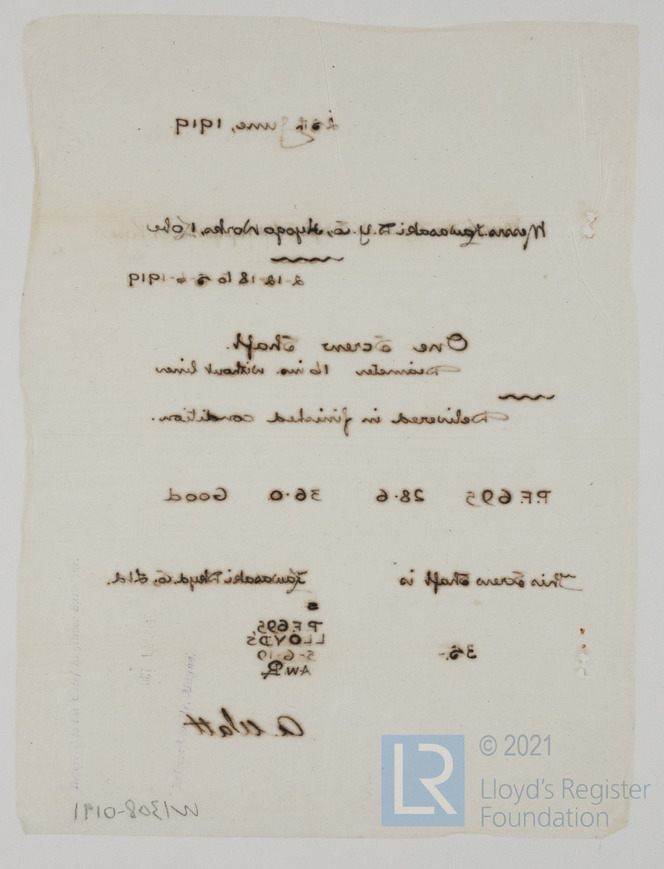 25th June, 1919
Messrs. Kawasaki D.Y. Co, Hyogo Works, Kobe
2-12-18 to 5-6-1919
One Screw Shaft.
Diameter 16 ins. without liner
Delivered in finished condition.
P.F. 695 28.6 36.0 Good
This Screw Shaft is Kawasaki Dkyd. Co. Ltd.
P.F. 695,
LLOYD'S
35.- 5-6-19
A.W.
A. Watt
W1308-0191
LR
© 2021
Lloyd's Register
Foundation